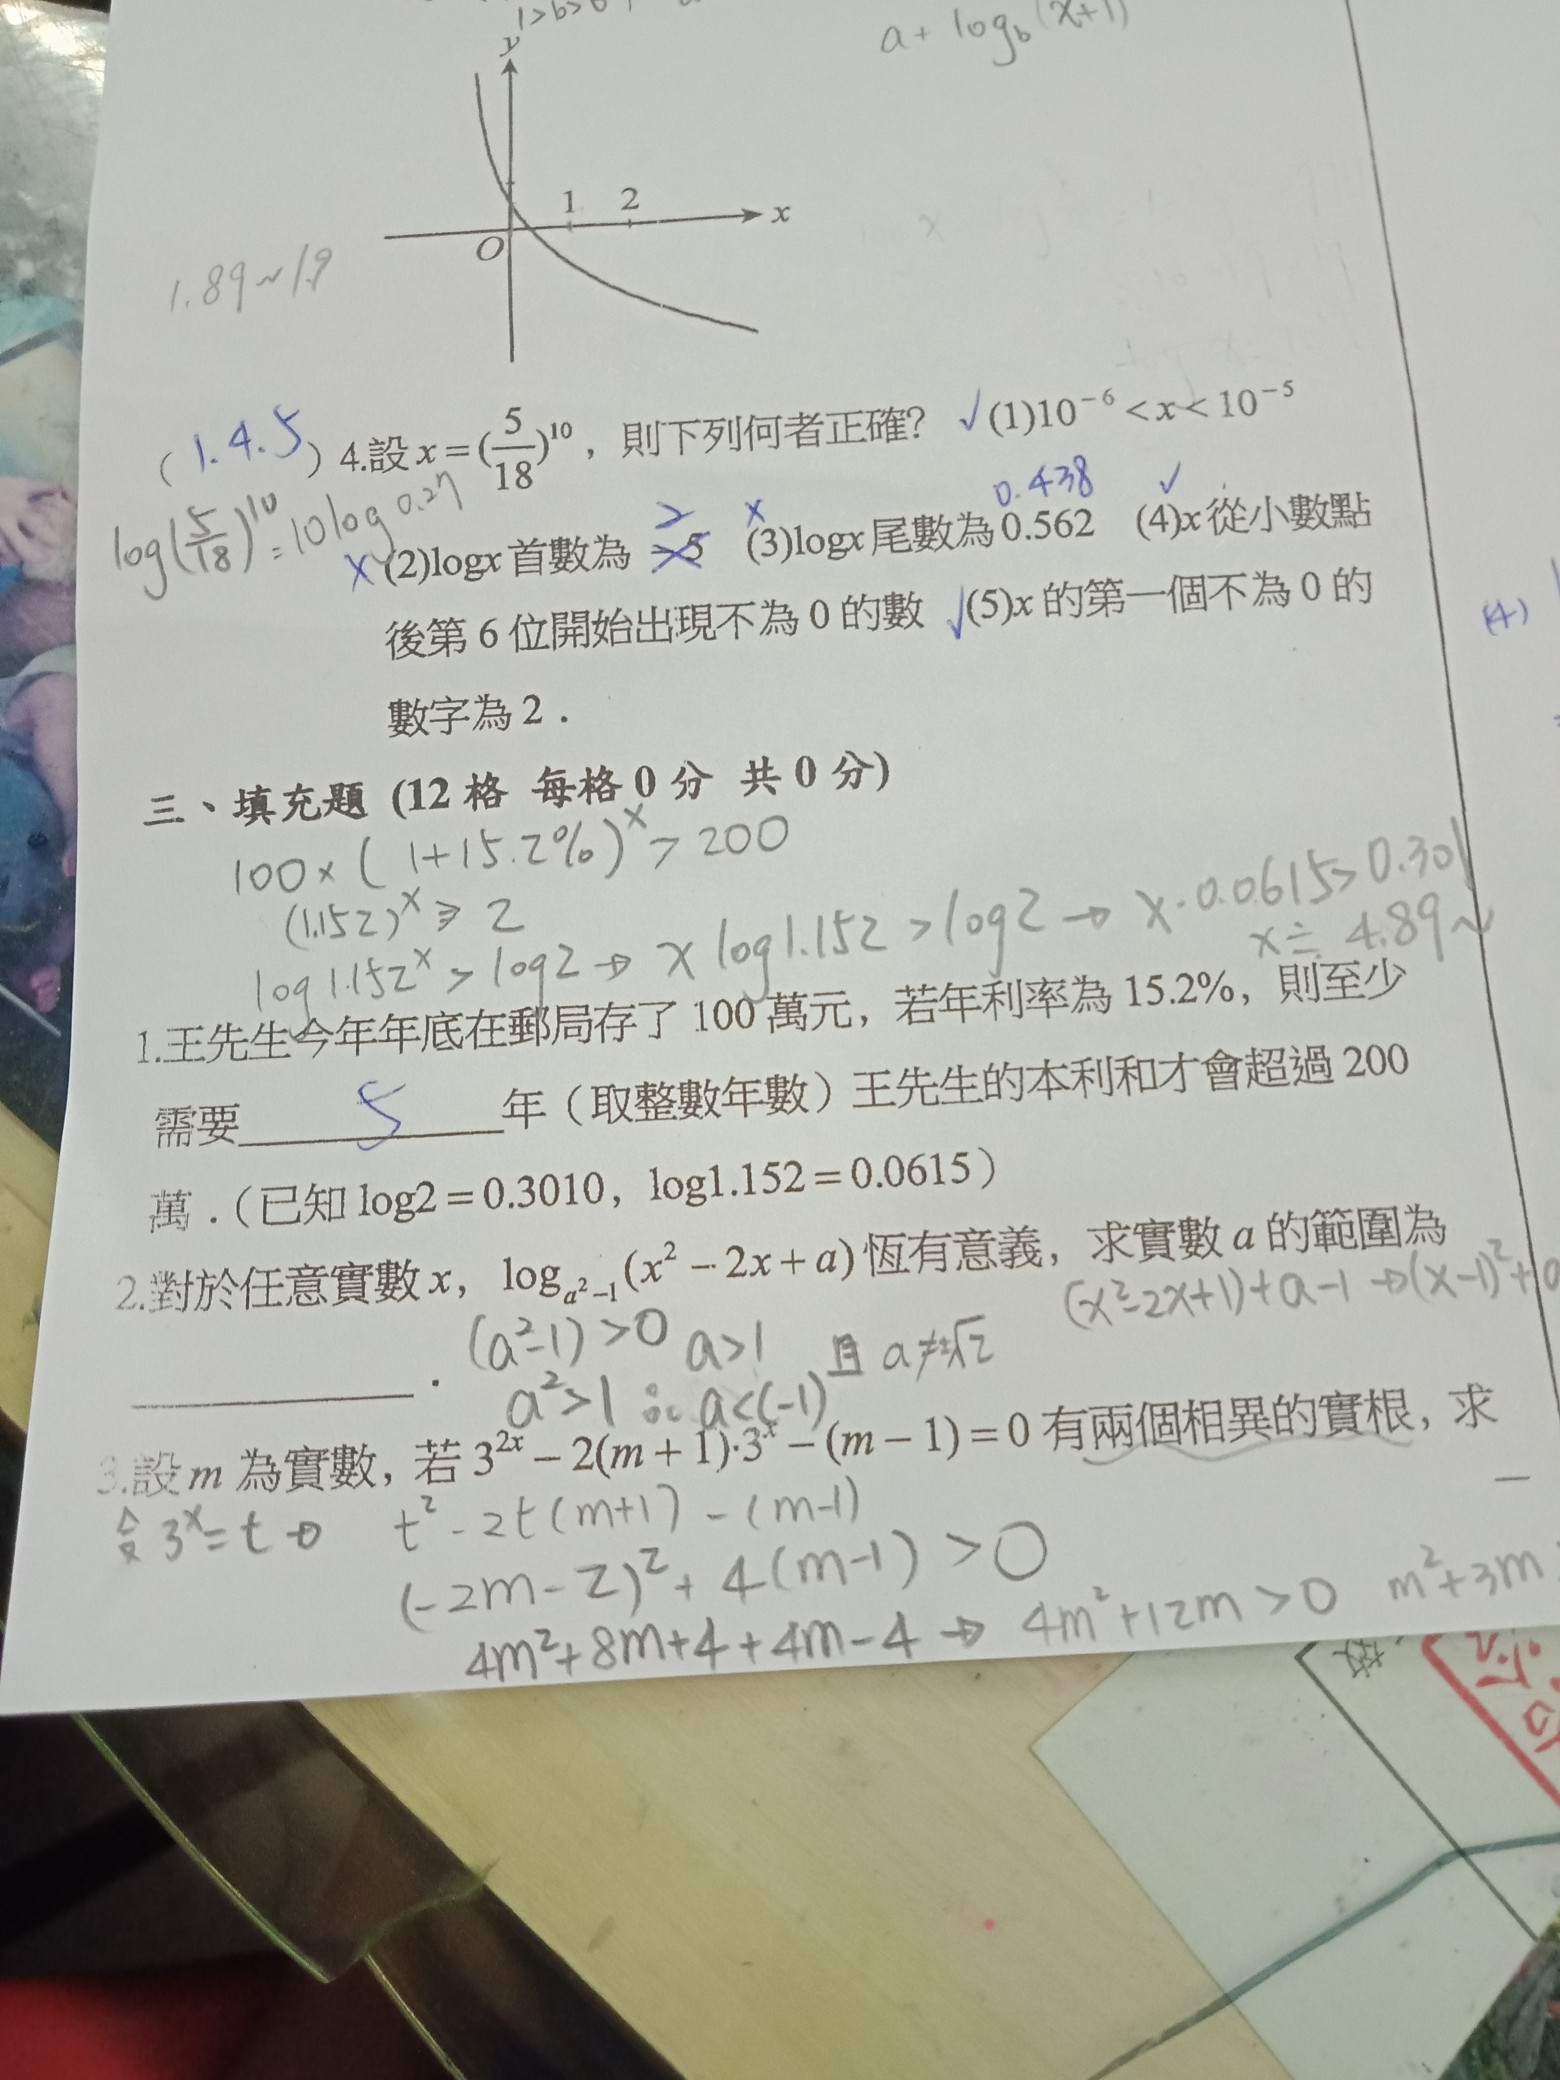 1>b>0
a + log_b (x+1)
y
1 2
x
O
1.89~1.9
(1.4.5) 4.設 x = (5/18)^10 , 則下列何者正確? ✓(1)10^-6 < x < 10^-5
log(5/18)^10 = 10log0.27
0.438 ✓
x (2)logx 首數為 -5 x (3)logx 尾數為 0.562 (4)x 從小數點
後第 6 位開始出現不為 0 的數 ✓(5)x 的第一個不為 0 的
(4)
數字為 2 .
三、填充題 (12 格 每格 0 分 共 0 分)
100×(1+15.2%)^x > 200
(1.152)^x ≥ 2
log1.152^x > log2 → x log1.152 > log2 → x·0.0615>0.301
x≒4.89~
1.王先生今年年底在郵局存了 100 萬元, 若年利率為 15.2%, 則至少
需要 5 年 (取整數年數) 王先生的本利和才會超過 200
萬 . (已知 log2 = 0.3010, log1.152 = 0.0615)
2.對於任意實數 x, log_{a^2-1}(x^2 - 2x + a) 恆有意義, 求實數 a 的範圍為
(x^2-2x+1)+a-1 → (x-1)^2+
(a^2-1)>0 a>1 且 a≠±√2
______ .
a^2>1 ∴ a<(-1)
3.設 m 為實數, 若 3^{2x} - 2(m + 1)·3^x - (m - 1) = 0 有兩個相異的實根, 求
令 3^x = t → t^2 - 2t(m+1) - (m-1)
(-2m-2)^2 + 4(m-1) > 0
4m^2+8m+4+4m-4 → 4m^2+12m>0 m^2+3m